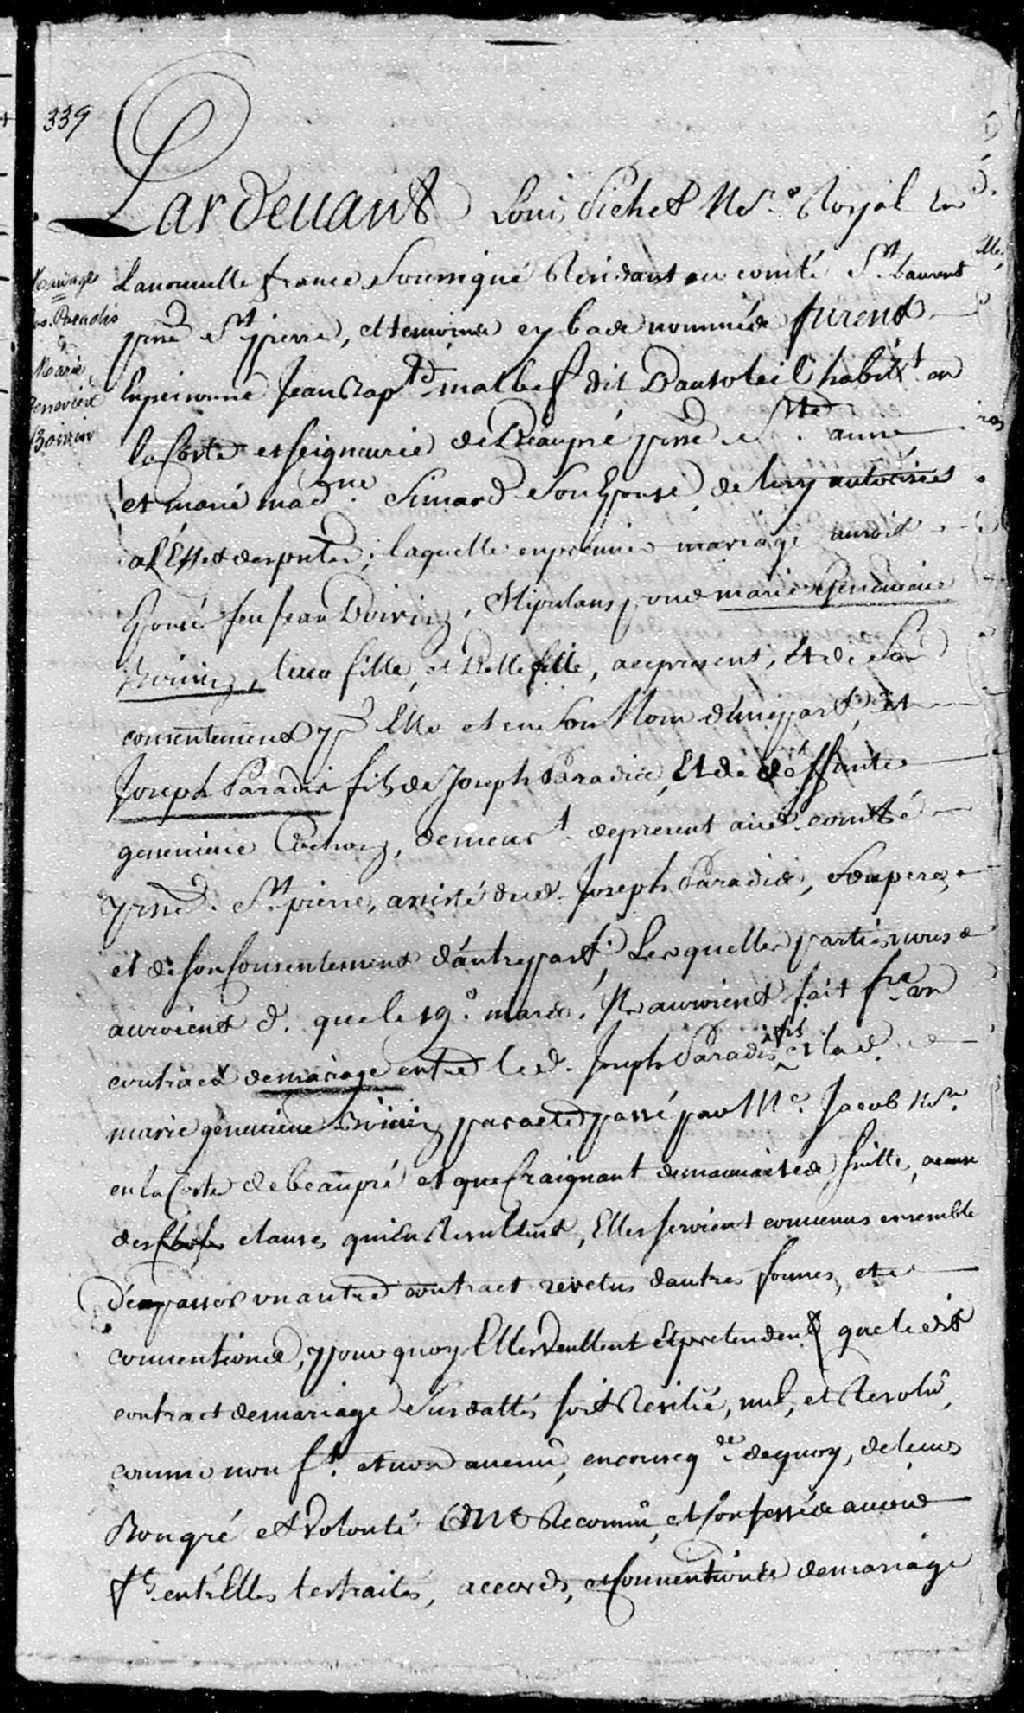 339
Pardevant Louis Pichet Nre Royal en
Mariage
Jos. Paradis
&
Marie
Genevieve
Boivin
la nouvelle france Soussigné Residant au comté St Laurent
psse St pierre, et temoins cy bas nommés furent
En personne Jean Bapte malbeuf dit Beausoleil habitt en
la Coste et seigneurie de Beaupré psse Ste anne
et marie madne Simard Son Epouse de luy autorisée
a l'Effet des pntes, laquelle en premier mariage auroit
Epousé feu Jean Boivin, Stipulans pour marie Genevieve
Boivin, leur fille, et Belle fille, a ce present, et de Son
consentement pr Elle et en Son Nom d'une part, Et
Joseph Paradis fils de Joseph Paradis, Et de deffunte
genevieve Cochon, demeurt de present aud. comté
psse St pierre, assisté dud. Joseph Paradis, Son pere,
et de son Consentement d'autre part, Lesquelles parties nous
auroient d. que le 19e mars. Ils auroient fait fre un
contract de mariage entre led. Joseph Paradis fils et lad.
marie genevieve Boivin par acte passé par Me Jacob Nre
en la Coste de beaupré et que Craignant de mauvaises suitte, a cause
des clauses qui En Resultent, Elles seroient convenus ensemble
d'en passer un autre contract revetus d'autres formes, et
conventions, pour quoy Elles Veullent Et pretendent que le dit
contract de mariage Susdatté, soit Resilié, nul, et Resolu,
comme non ft. et non avenu, en consequce de quoy, de leurs
Bongré et Volonté Ont Reconnu, et Confessé avoir
ft entr'Elles les traités, accords, et Conventions de mariage